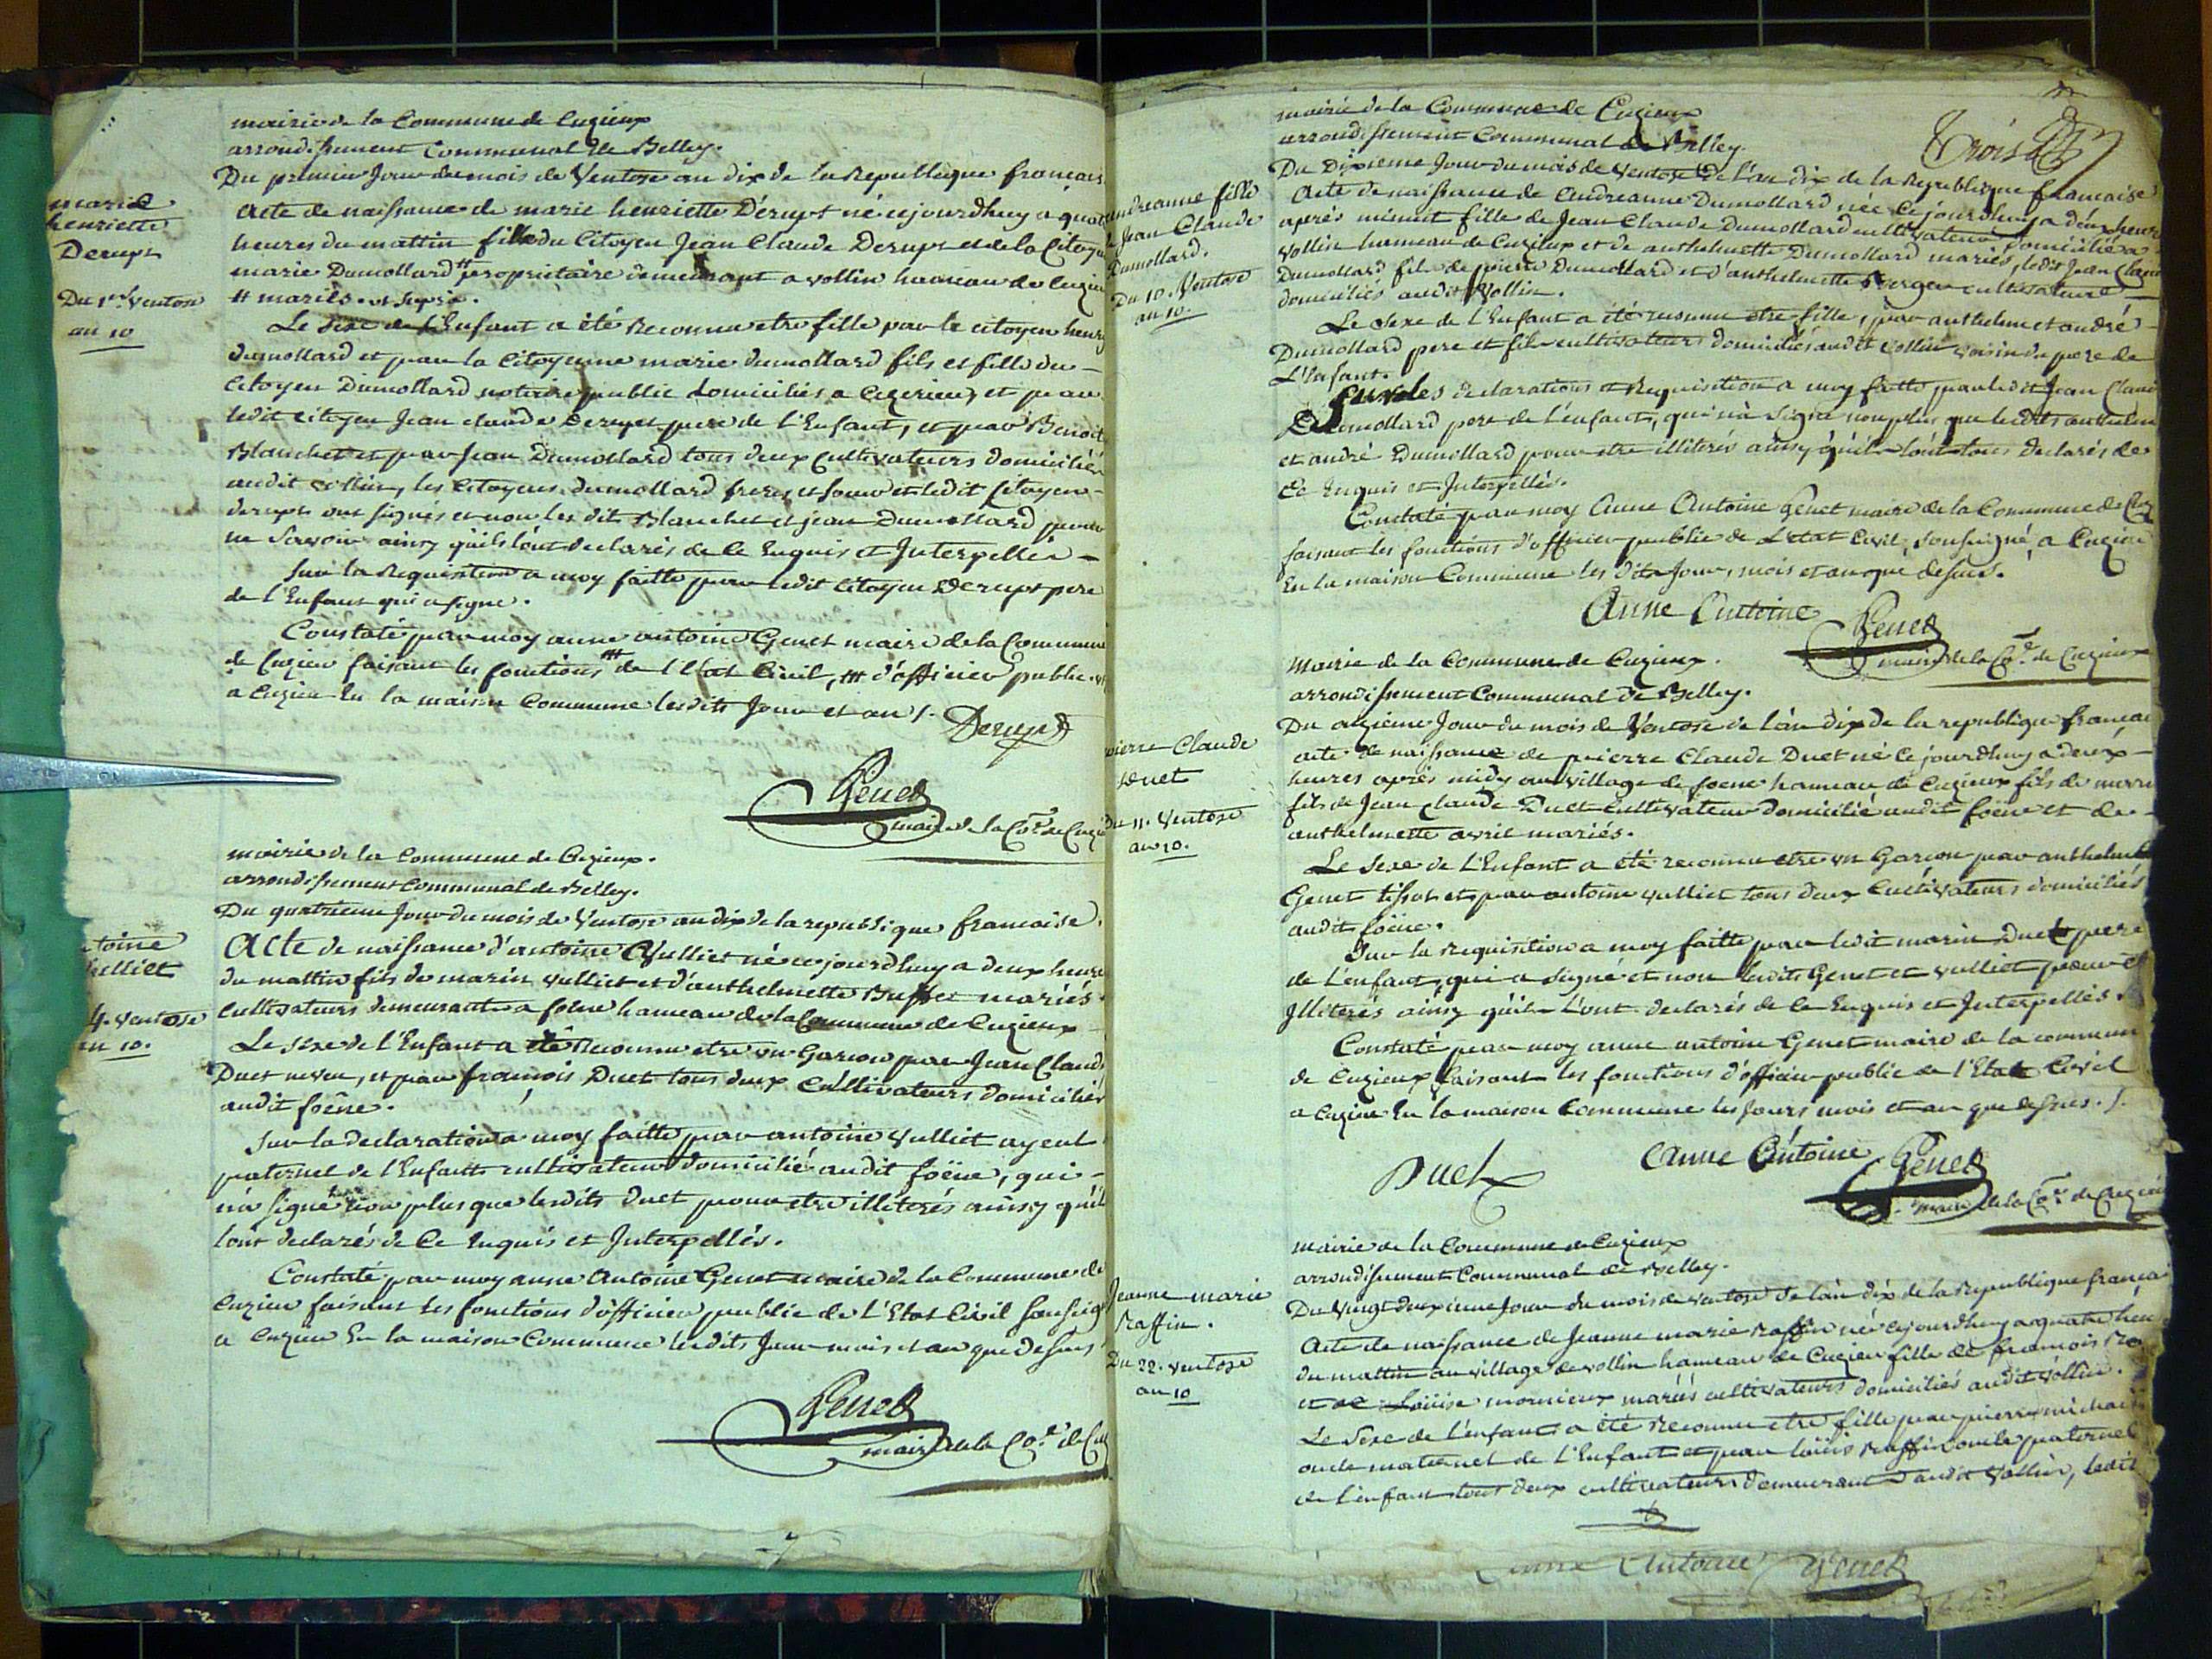 mairie de la Commune de Cuzieux
arrondissement Communal de Belley.
Du premier Jour du mois de Ventose an dix de la Republique francais
marie
henriette
Derupt
Du 1er ventose
an 10
Acte de naissance de marie henriette Dérupt né cejourdhuy a quat
heures du mattin fille du Citoyen Jean Claude Derupt et de la Citoy
marie Dumollard # propriétaire demeurant a vollin hameau de Cuzieu
# mariés
Le sexe de l'Enfant a été Reconnu etre fille par le citoyen henry
dumollard et par la Citoyenne marie dumollard fils et fille du -
Citoyen Dumollard notaire public domiciliés a Ceyzerieu, et par
ledit citoyen Jean claude Derupt pere de l'Enfant, et par Benoit
Blanchet et par Jean Dumollard tous deux Cultivateurs domiciliés
audit vollin, les Citoyens dumollard freres et soeur et ledit Citoyen -
derupt ont signés et non les dits Blanchet et jean Dumollard pour
ne Scavoir ainsy quils l'ont declarés de Ce Enquis et Interpellés -
Sur la Requisition a moy faitte par ledit Citoyen Derupt pere
de l'Enfant qui a signe.
Constaté par moy anne antoine Genet maire de la Commune
de Cuzieu faisant les fonctions ## de l'Etat Civil, ## d'officier public
a Cuzieu En la maison Commune lesdits Jour et an /.
Derupt
Genet
maire de la Co.e de Cuzi
mairie de la Commune de Cuzieux.
arrondissement Communal de Belley.
Du quatrieme Jour du mois de Ventose an dix de la republique francaise.
toine
Vulliet
4. Ventose
an 10.
Acte de naissance d'antoine Vulliet né cejourdhuy a deux heure
du mattin fils de marin vulliet et d'anthelmette Buffet mariés
cultivateurs demeurants a foëne hameau de la Commune de Cuzieux
Le sexe de l'Enfant a été Reconnu etre un Garcon par Jean Claude
Duet neveu, et par francois Duet tous deux Cultivateurs domiciliés
audit foëne.
Sur la declaration a moy faitte par antoine Vulliet ayeul
paternel de l'Enfant cultivateur domicilié audit foëne, qui -
n'a signé non plus que lesdits duet pour etre illiterés ainsy qu'il
l'ont declarés de Ce Enquis et Interpellés.
Constaté par moy anne Antoine Genet maire de la Commune de
Cuzieu faisant les fonctions d'officier public de l'Etat Civil Sousig
a Cuzieu En la maison Commune lesdits Jour mois et an que dessus
Genet
maire de la Co.e de Cuz
mairie de la Commune de Cuzieux
arrondissement Communal de Belley.
Trois
Du Dixieme Jour du mois de Ventose de l'an dix de la Republique francaise
andreanne fille
Jean Claude
Dumollard.
Du 10. Ventose
an 10.
Acte de naissance de andreanne Dumollard née cejourdhuy a deux heures
après minuit fille de Jean Claude Dumollard cultivateur domicilié a
vollin hameau de Cuzieux et de anthelmette Dumollard mariés, ledit Jean Claude
Dumollard fils de pierre Dumollard et d'anthelmette Berger cultivateurs
domiciliés audit Vollin.
Le Sexe de l'Enfant a été reconnu etre fille, par anthelme et andré -
Dumollard pere et fils cultivateurs domiciliés audit Vollin voisin du pere de
L'Enfant.
Sur les declarations et Requisition a moy faitte par ledit Jean Claude
Dumollard pere de l'enfant, qui n'a Signé non plus que lesdits anthelme
et andré Dumollard pour etre illiterés ainsy qu'ils l'ont tous declarés de
Ce Enquis et Interpellés.
Constaté par moy Anne Antoine Genet maire de la Commune de Cuz
faisant les fonctions d'officier public de L'etat Civil, Soussigné, a Cuzieu
En la maison Commune les dits Jour, mois et an que dessus.
Anne Antoine Genet
maire de la Co.e de Cuzieux
Mairie de la Commune de Cuzieux.
arrondissement Communal de Belley.
Du onzieme Jour du mois de Ventose de l'an dix de la republique francai
pierre Claude
Duet
Du 11. Ventose
an 10.
acte de naissance de pierre Claude Duet né Cejourdhuy a deux -
heures après midy au village de foene hameau de Cuzieux fils de marin
fils de Jean Claude Duet Cultivateur domicilié audit foëne et de -
anthelmette avril mariés.
Le Sexe de l'Enfant a été reconnu etre un Garcon par anthelme
Genet tissot et par antoine vulliet tous deux Cultivateurs domiciliés
audit foëne.
Sur la requisition a moy faitte par ledit marin Duet pere
de l'enfant, qui a Signé et non lesdits Genet et vulliet pour
Jlliterés ainsy qu'ils L'ont declarés de Ce Enquis et Interpellés.
Constaté par moy anne antoine Genet maire de la commune
de Cuzieux faisant les fonctions d'officier public de l'Etat Civil
a Cuzieu En la maison Commune les Jours mois et an que dessus. /.
Duet
Anne Antoine Genet
maire de la Co.e de Cuzieu
mairie de la Commune de Cuzieux
arrondissement Communal de Belley.
Du Vingt deuxieme Jour du mois de Ventose de l'an dix de la Republique francai
Jeanne marie
Raffin.
Du 22. Ventose
an 10
Acte de naissance de Jeanne marie Raffin né cejourdhuy a quatre heu
du mattin au village de vollin hameau de Cuzieu fille de francois Ra
et de Loüise mornieux mariés cultivateurs domiciliés audit vollin.
Le Sexe de l'enfant a été Reconnu etre fille par pierre michai
oncle maternel de l'Enfant et par loüis Raffin oncle paternel
de l'enfant tous deux cultivateurs demeurant audit Vollin, ledit
anne Antoine Genet